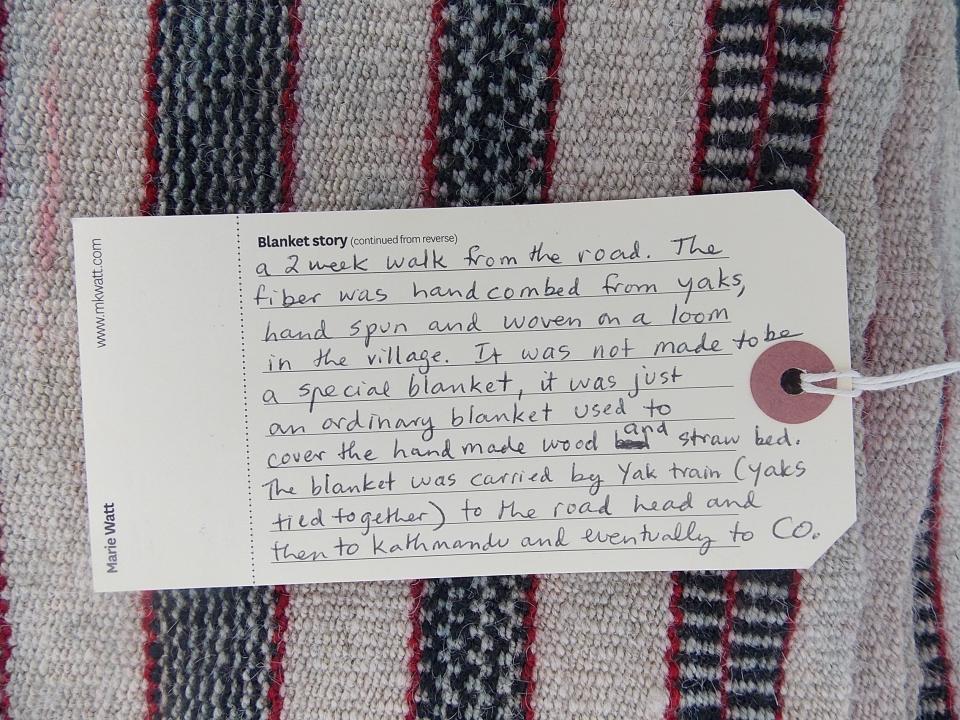 Blanket story (continued from reverse)
a 2 week walk from the road. The
fiber was hand combed from yaks,
hand spun and woven on a loom
in the village. It was not made to be
a special blanket, it was just
an ordinary blanket used to
cover the hand made wood and straw bed.
The blanket was carried by Yak train (yaks
tied together) to the road head and
then to Kathmandu and eventually to CO.
www.mkwatt.com
Marie Watt